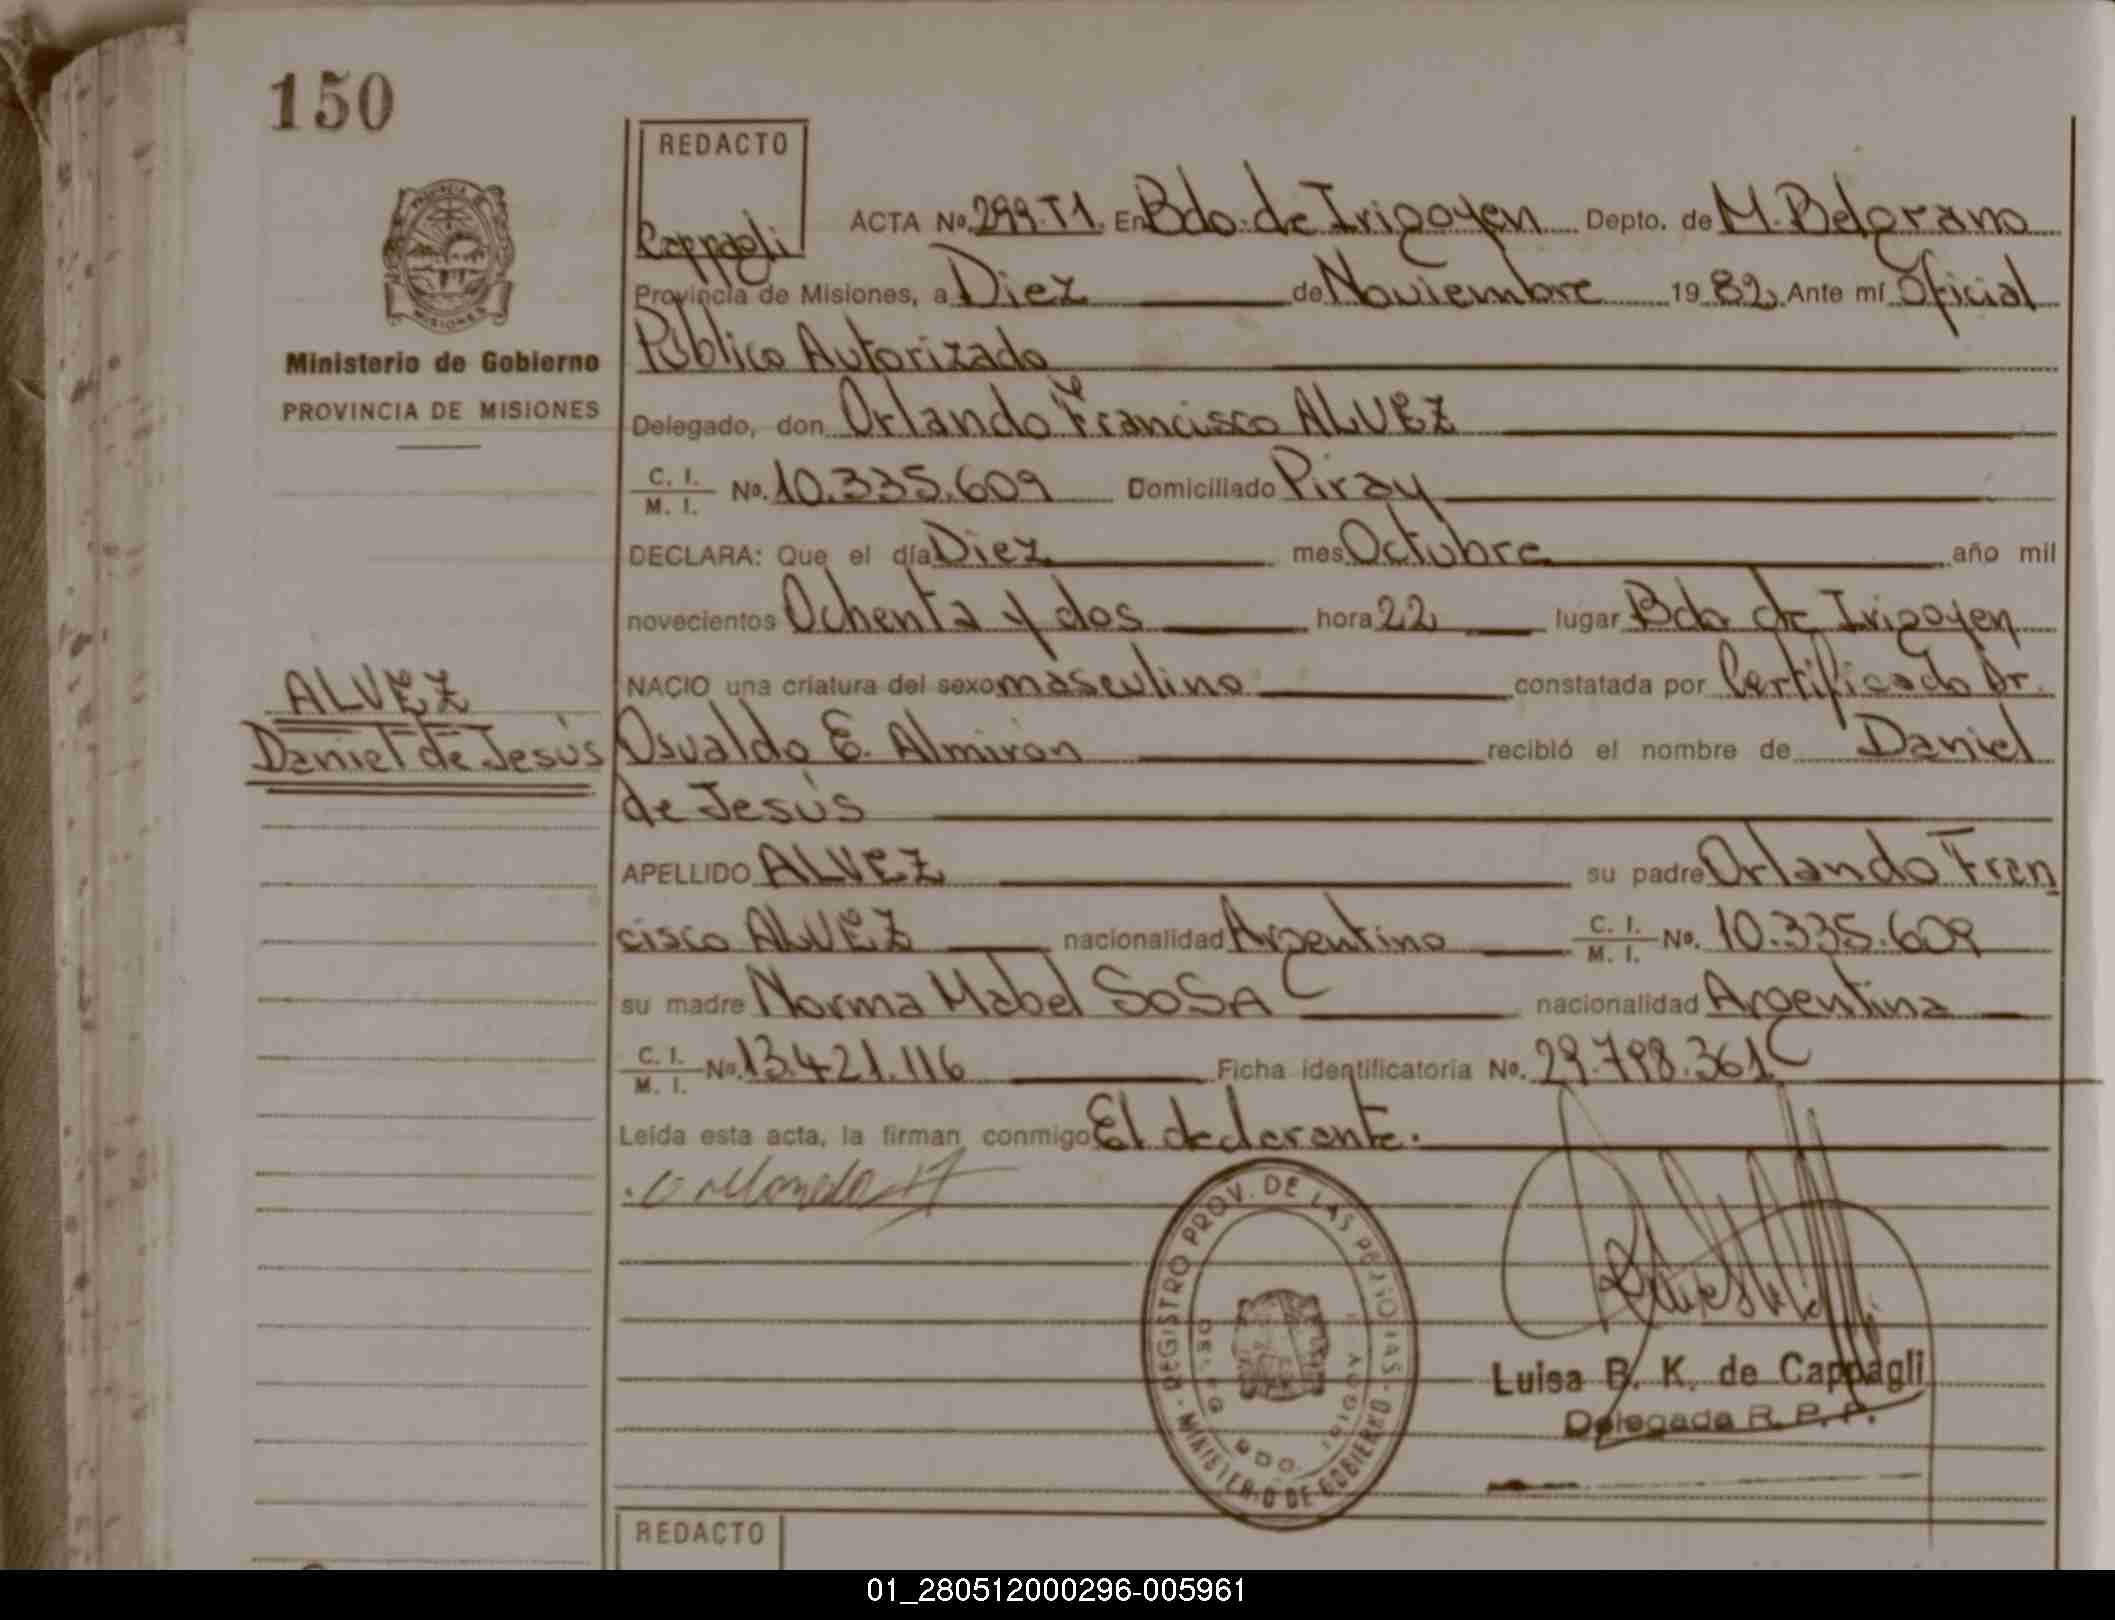 150
REDACTO
Cappagli
PROVINCIA
MISIONES
Ministerio de Gobierno
PROVINCIA DE MISIONES
ACTA Nº 299.T1. En Bdo. de Irigoyen Depto. de M. Belgrano
Provincia de Misiones, a Diez de Noviembre 1982 Ante mí Oficial
Público Autorizado
Delegado, don Orlando Francisco ALVEZ
C. I.
M. I. Nº. 10.335.609 Domiciliado Piray
DECLARA: Que el día Diez mes Octubre año mil
novecientos Ochenta y dos hora 22 lugar Bdo de Irigoyen
NACIO una criatura del sexo masculino constatada por Certificado Dr.
ALVEZ
Daniel de Jesús
Osvaldo E. Almiron recibió el nombre de Daniel
de Jesús
APELLIDO ALVEZ su padre Orlando Fran
cisco ALVEZ nacionalidad Argentino C. I.
M. I. Nº. 10.335.609
su madre Norma Mabel SOSA nacionalidad Argentina
C. I.
M. I. Nº. 13.421.116 Ficha identificatoria Nº. 29.798.361
Leída esta acta, la firman conmigo El declarante.
REGISTRO PROV. DE LAS PERSONAS - MINISTERIO DE GOBIERNO
BDO.
Luisa B. K. de Cappagli
Delegada R. P. P.
REDACTO
01_280512000296-005961